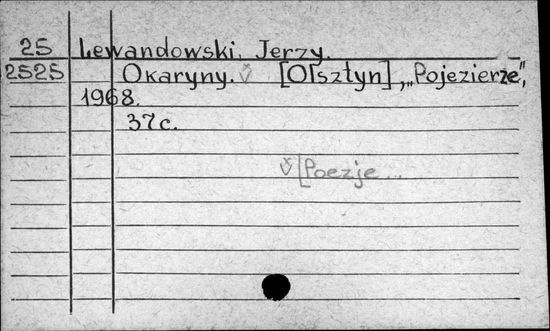 25 Lewandowski, Jerzy.
2525 Okaryny. v̌ [Olsztyn], „Pojezierze",
1968.
37 c.
v̌ [Poezje...